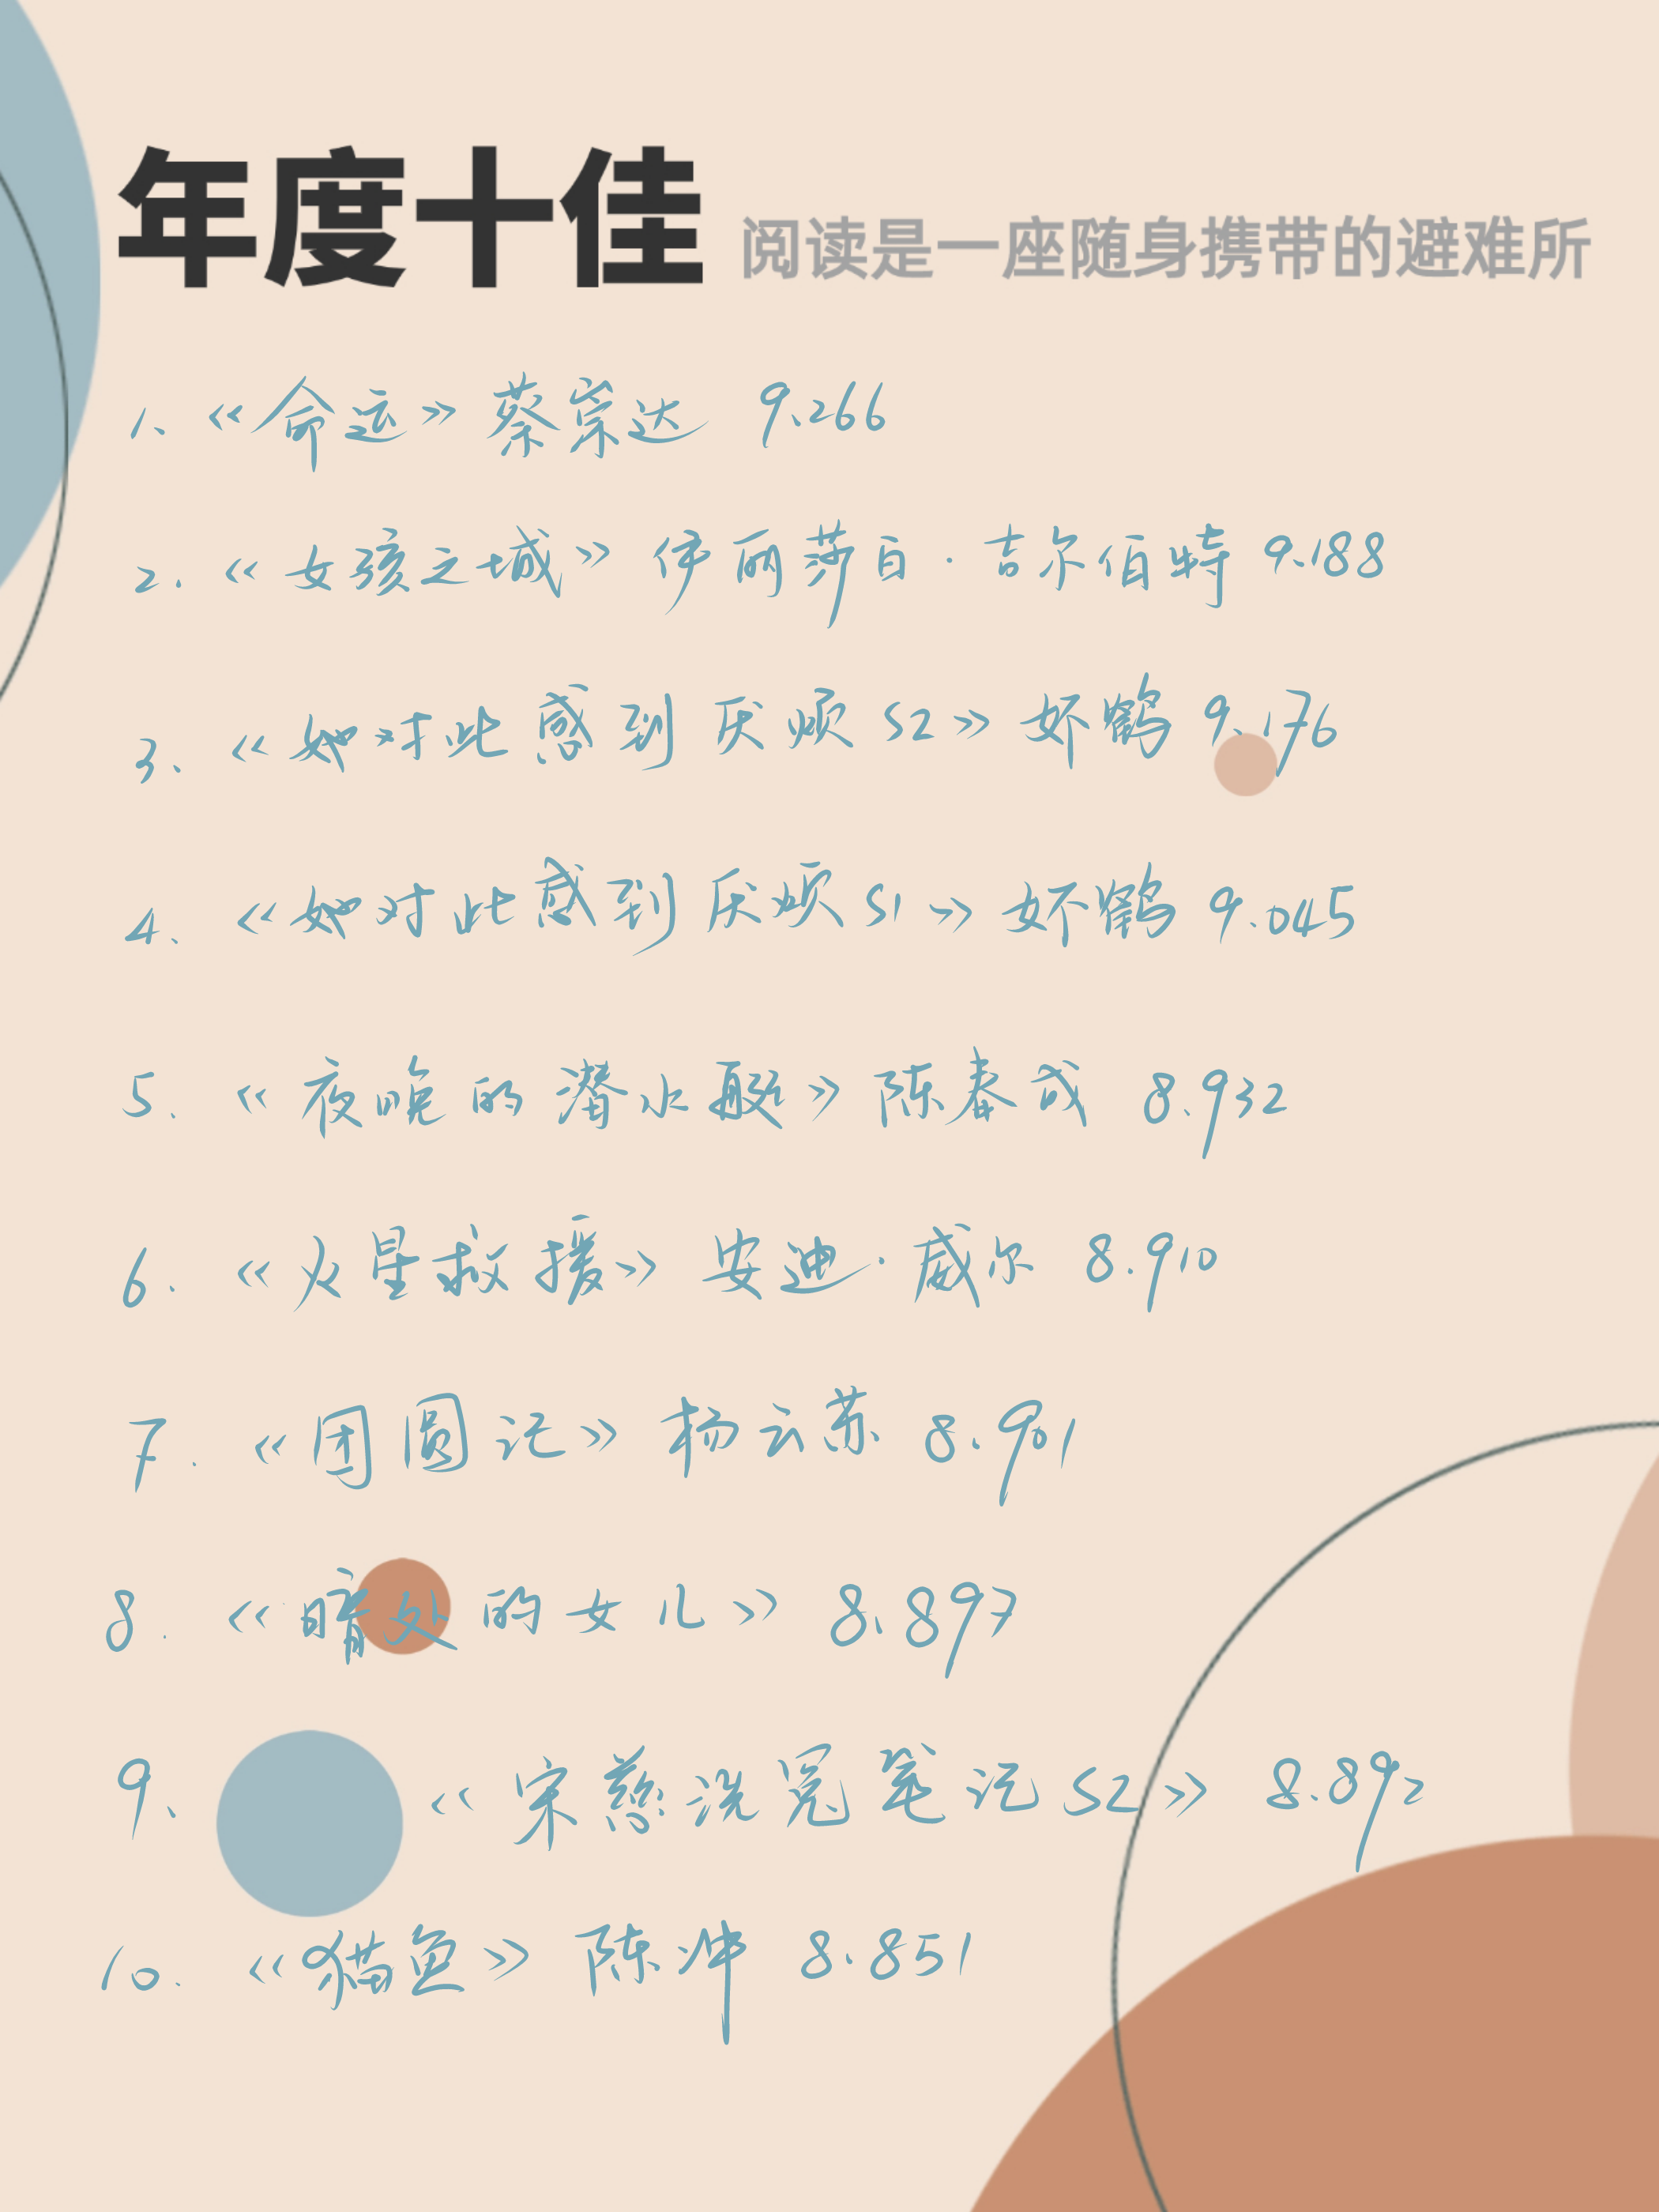 年度十佳 阅读是一座随身携带的避难所
1、《命运》蔡崇达 9.266
2.《女孩之城》伊丽莎白·吉尔伯特 9.188
3、《她对此感到厌烦S2》妚鹤 9.176
4、《她对此感到厌烦S1》妚鹤 9.045
5.《夜晚的潜水艇》陈春成 8.932
6.《火星救援》安迪·威尔 8.910
7.《团圆记》杨云苏 8.901
8.《暗处的女儿》8.897
9、《宋慈洗冤笔记S2》8.892
10.《猫鱼》陈冲 8.851